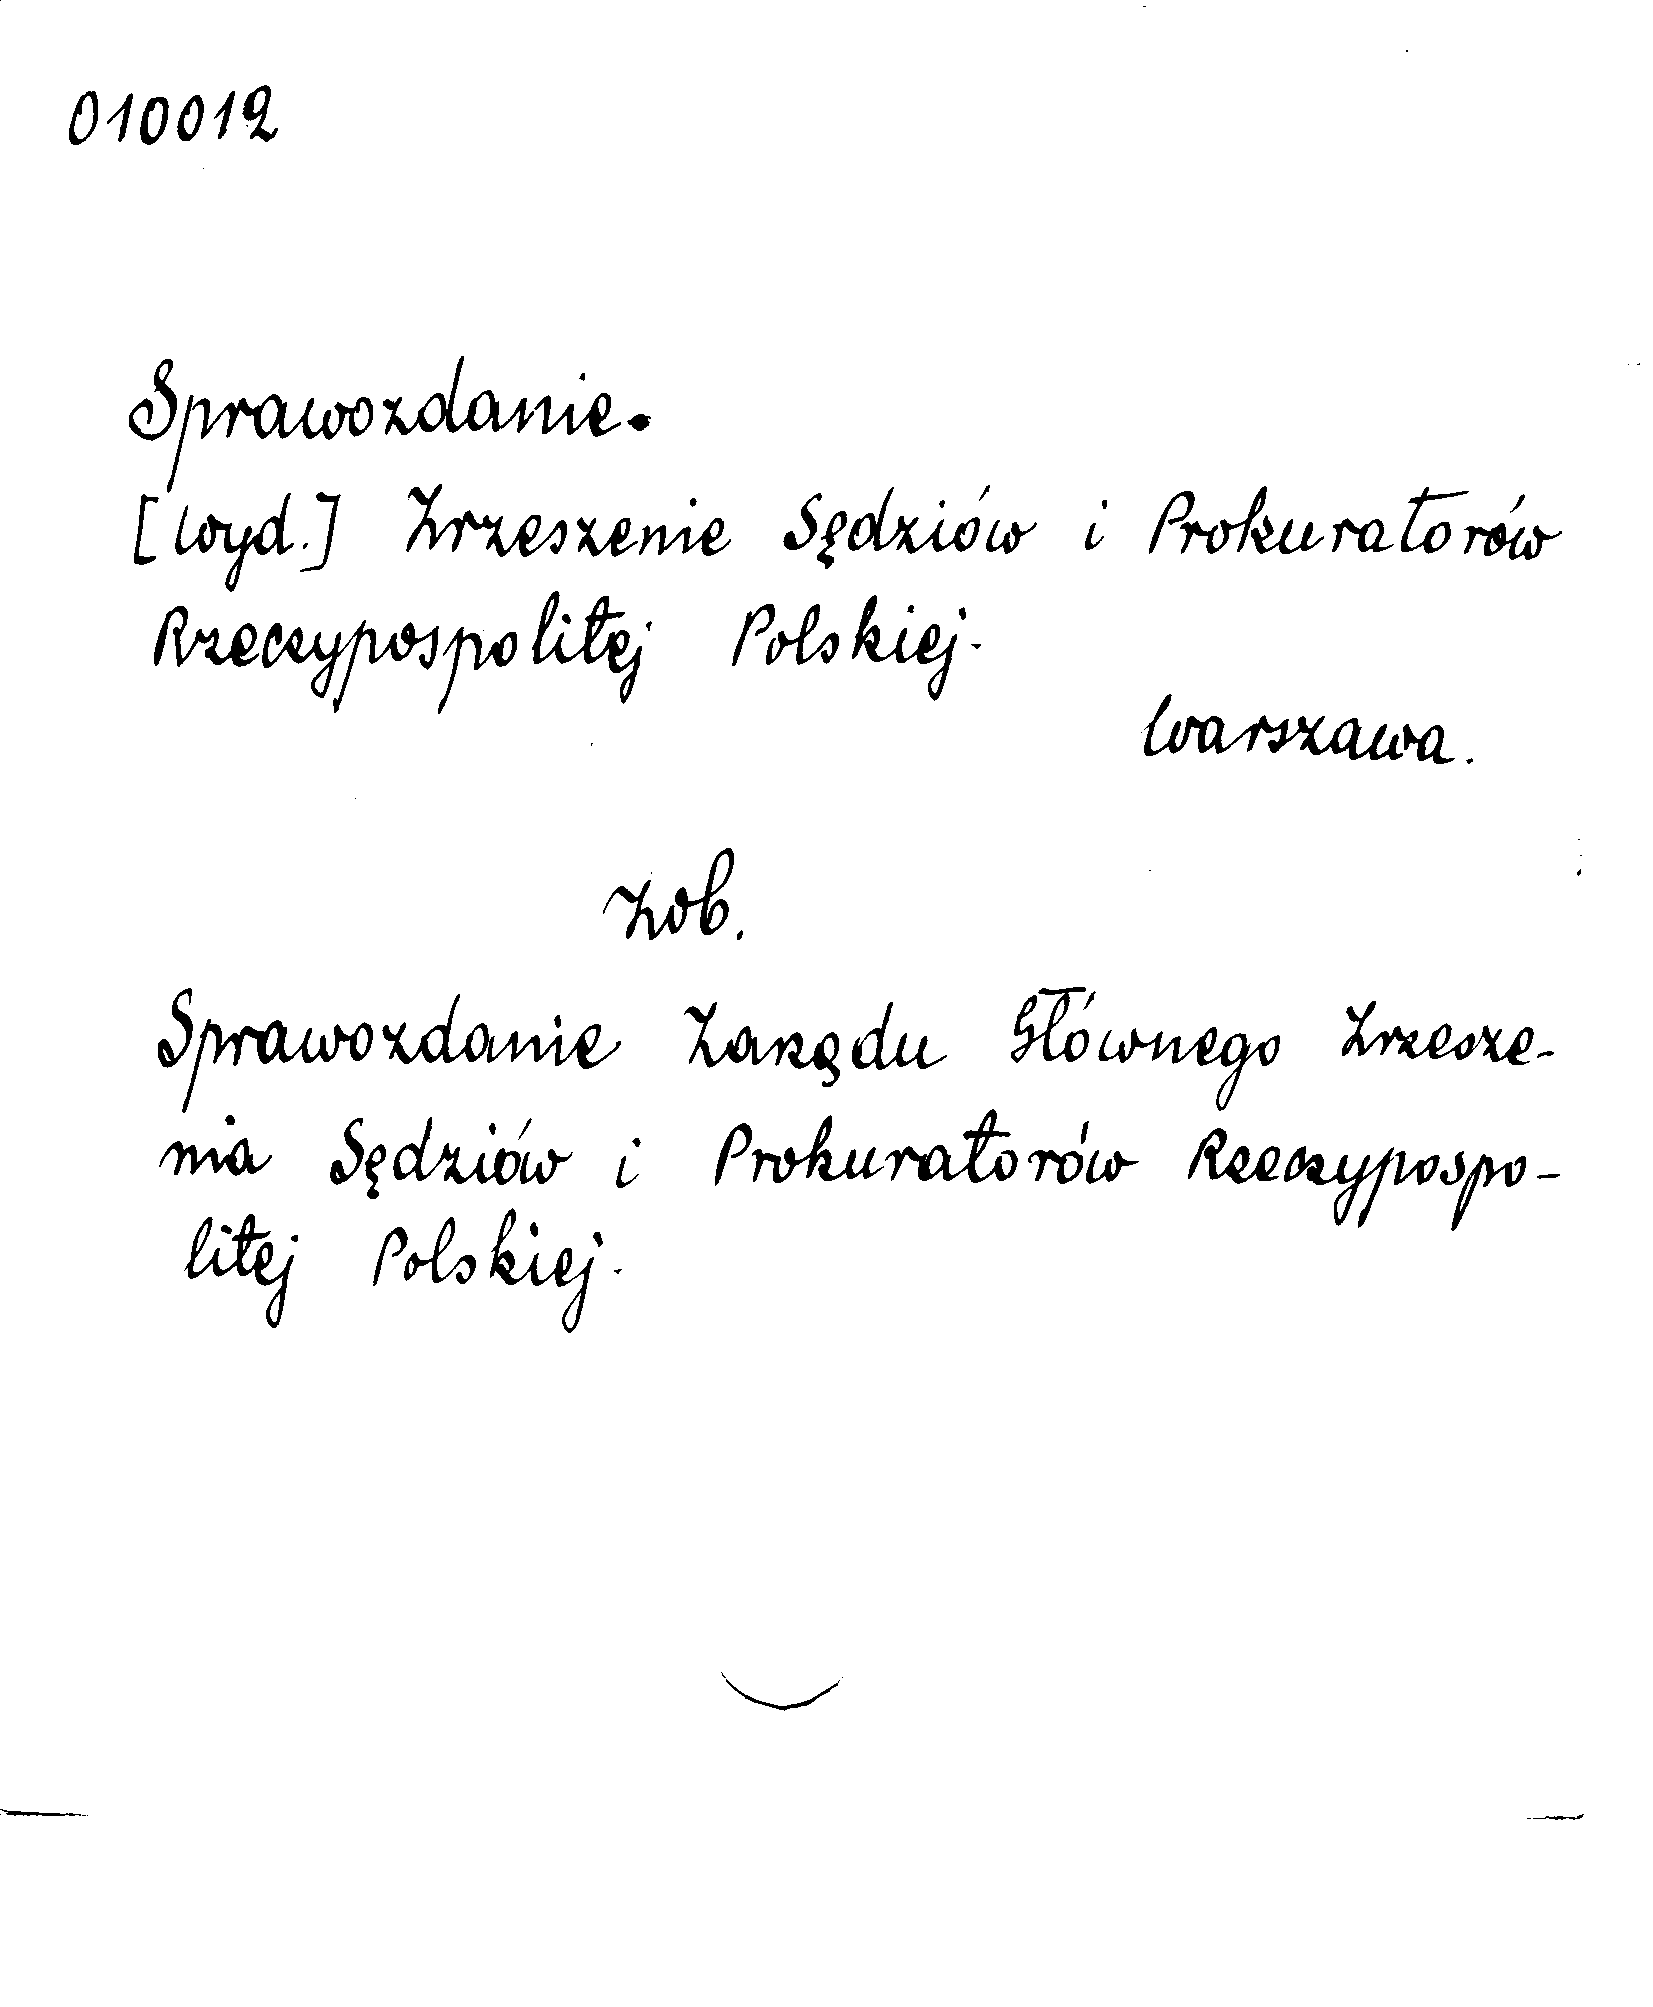 010012
Sprawozdanie.
[Wyd.] Zrzeszenie Sędziów i Prokuratorów
Rzeczypospolitej Polskiej.
Warszawa.
Zob.
Sprawozdanie Zarządu Głównego Zrzesze-
nia Sędziów i Prokuratorów Rzeczypospo-
litej Polskiej.